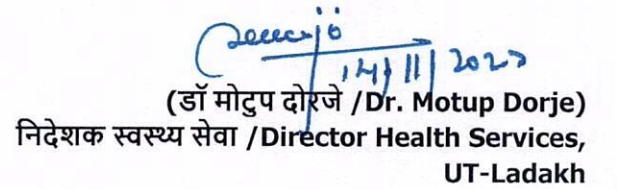 14/11/2023
(डॉ मोटुप दोरजे /Dr. Motup Dorje)
निदेशक स्वस्थ्य सेवा /Director Health Services,
UT-Ladakh